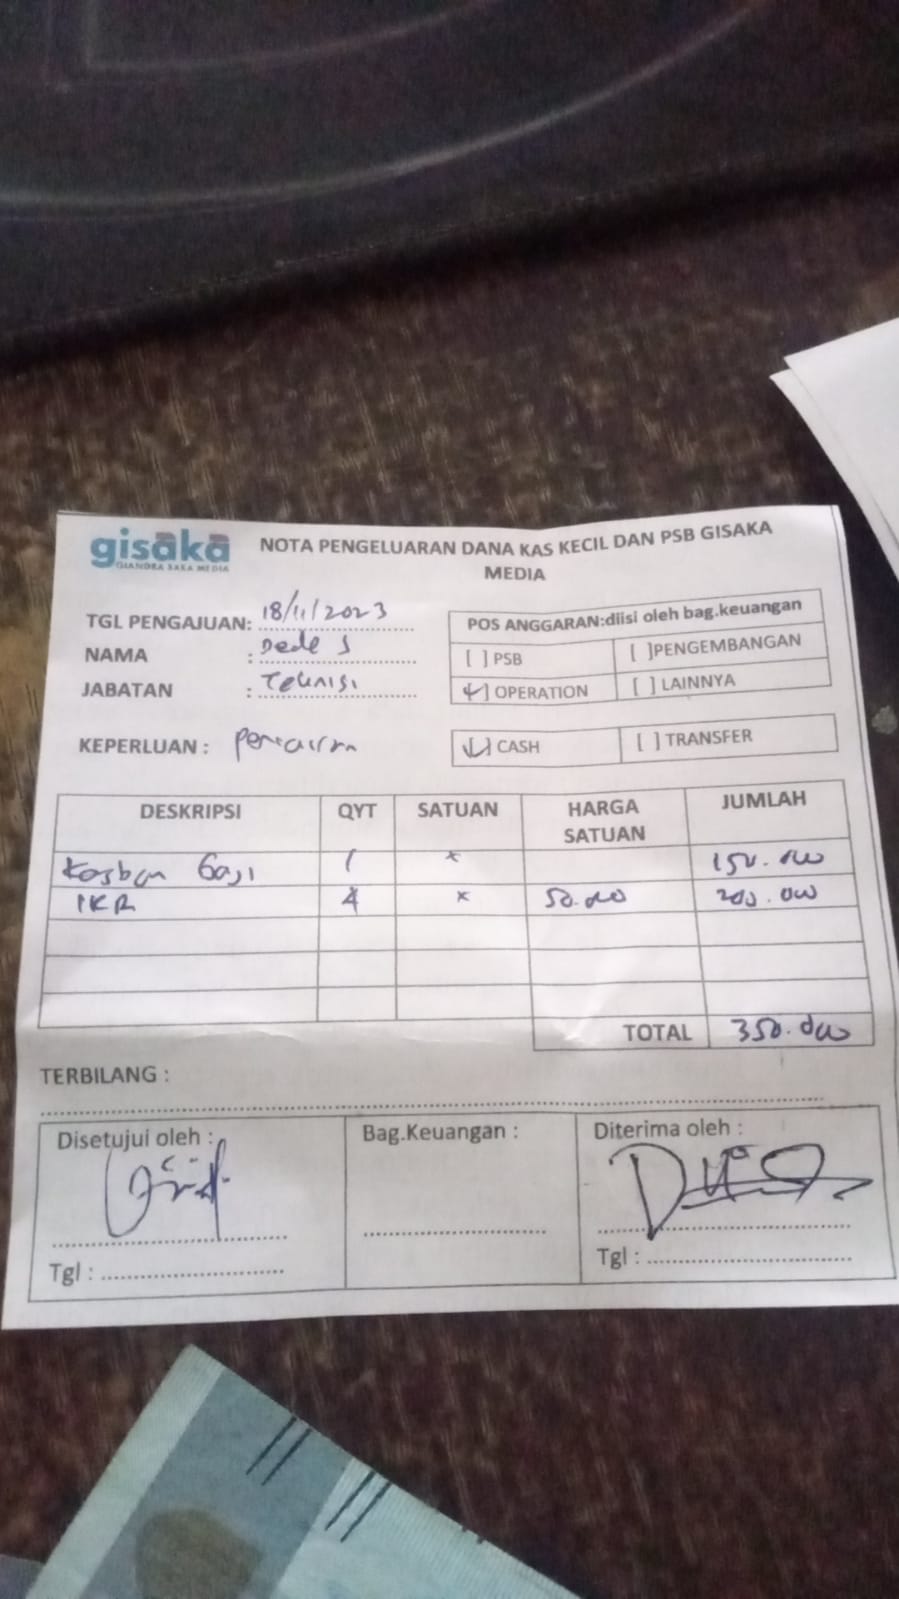 gisaka
GIANDRA SAKA MEDIA
NOTA PENGELUARAN DANA KAS KECIL DAN PSB GISAKA
MEDIA
TGL PENGAJUAN: 18/11/2023
NAMA : Dede S
JABATAN : Teknisi
POS ANGGARAN:diisi oleh bag.keuangan
[ ] PSB [ ]PENGEMBANGAN
[✓] OPERATION [ ] LAINNYA
KEPERLUAN :
[✓] CASH [ ] TRANSFER
DESKRIPSI QYT SATUAN HARGA SATUAN JUMLAH
Kasbon Gaji 1 x 150.000
IKR 4 x 50.000 200.000
TOTAL 350.000
TERBILANG :
Disetujui oleh : Bag.Keuangan : Diterima oleh :
Tgl : Tgl :